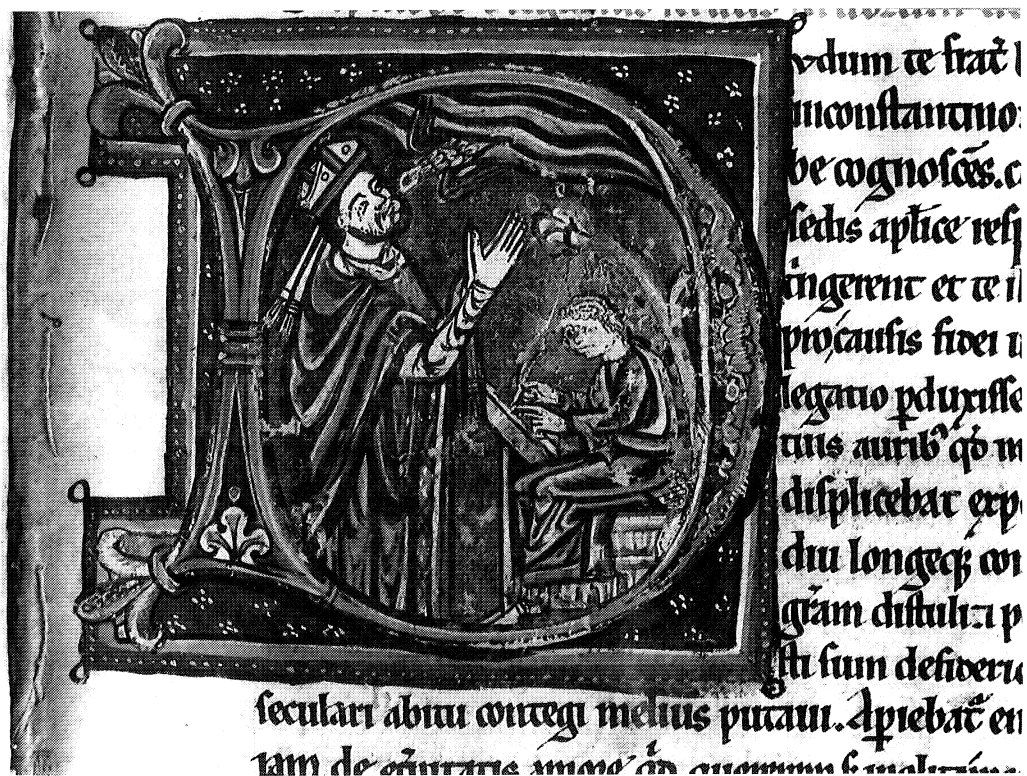 D
vdum te frat̄
inconstantino
be cognoscēs. c
sedis apl̄ice resp
tingerent et te il
pro causis fidei u
legatio ꝑduxisse
tuis aurib⁹ qđ m
displicebat exp
diu longeqꝫ con
gr̄am distuli ⁊ p
sti sum desiderio
seculari abitu contegi melius putaui. Aꝑiebat̄ en
iam de et̄nitatis amore